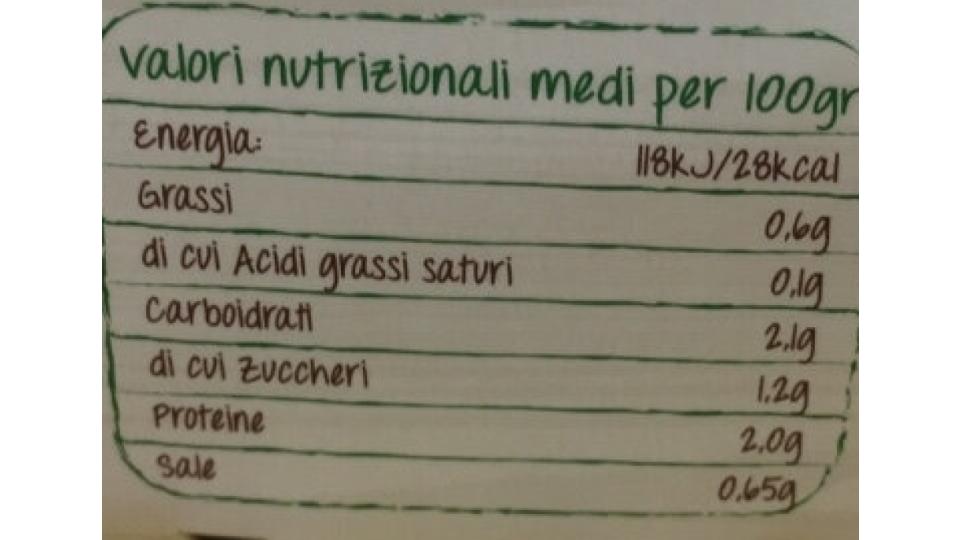 Valori nutrizionali medi per 100gr
Energia: 118kJ/28kcal
Grassi 0,6g
di cui Acidi grassi saturi 0,1g
Carboidrati 2,1g
di cui Zuccheri 1,2g
Proteine 2,0g
Sale 0,65g